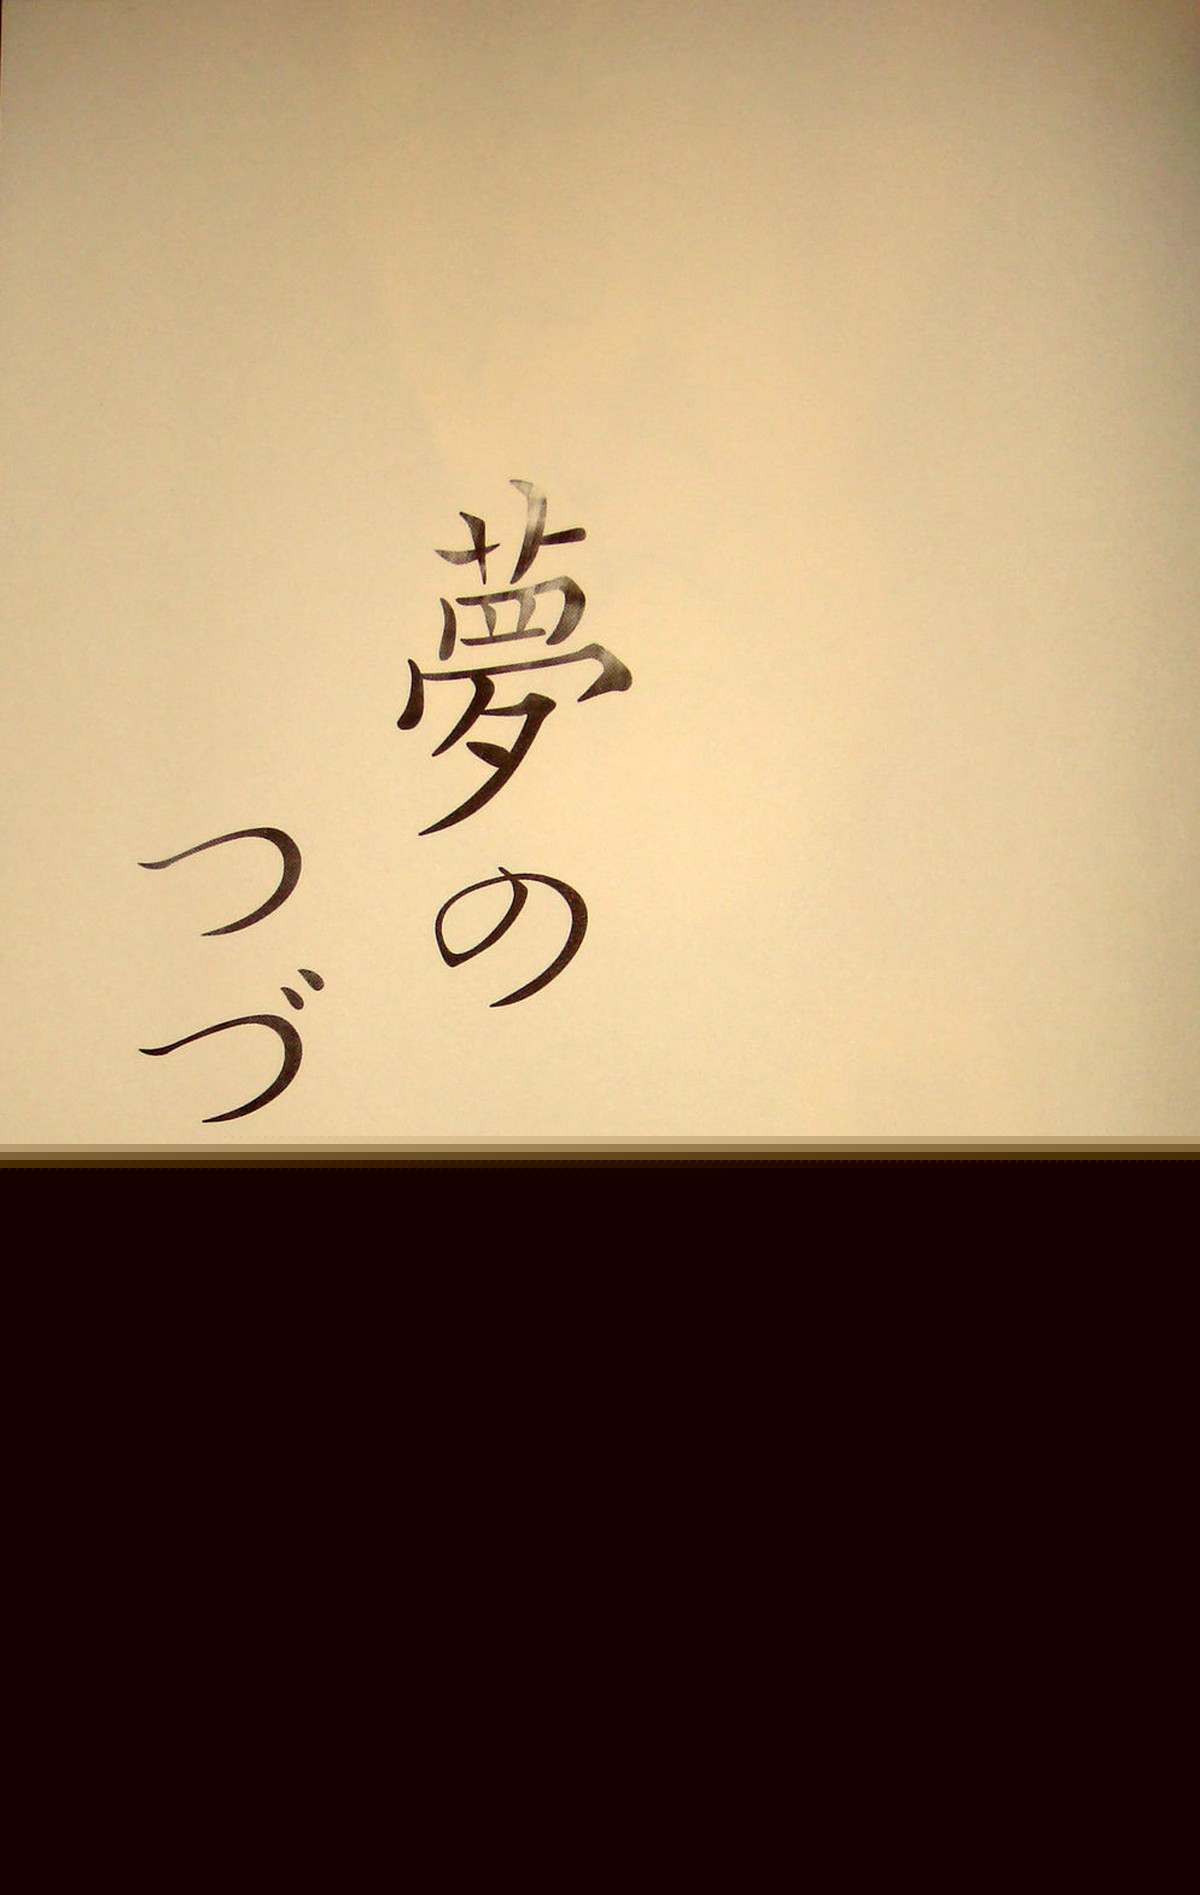 夢の
つづ